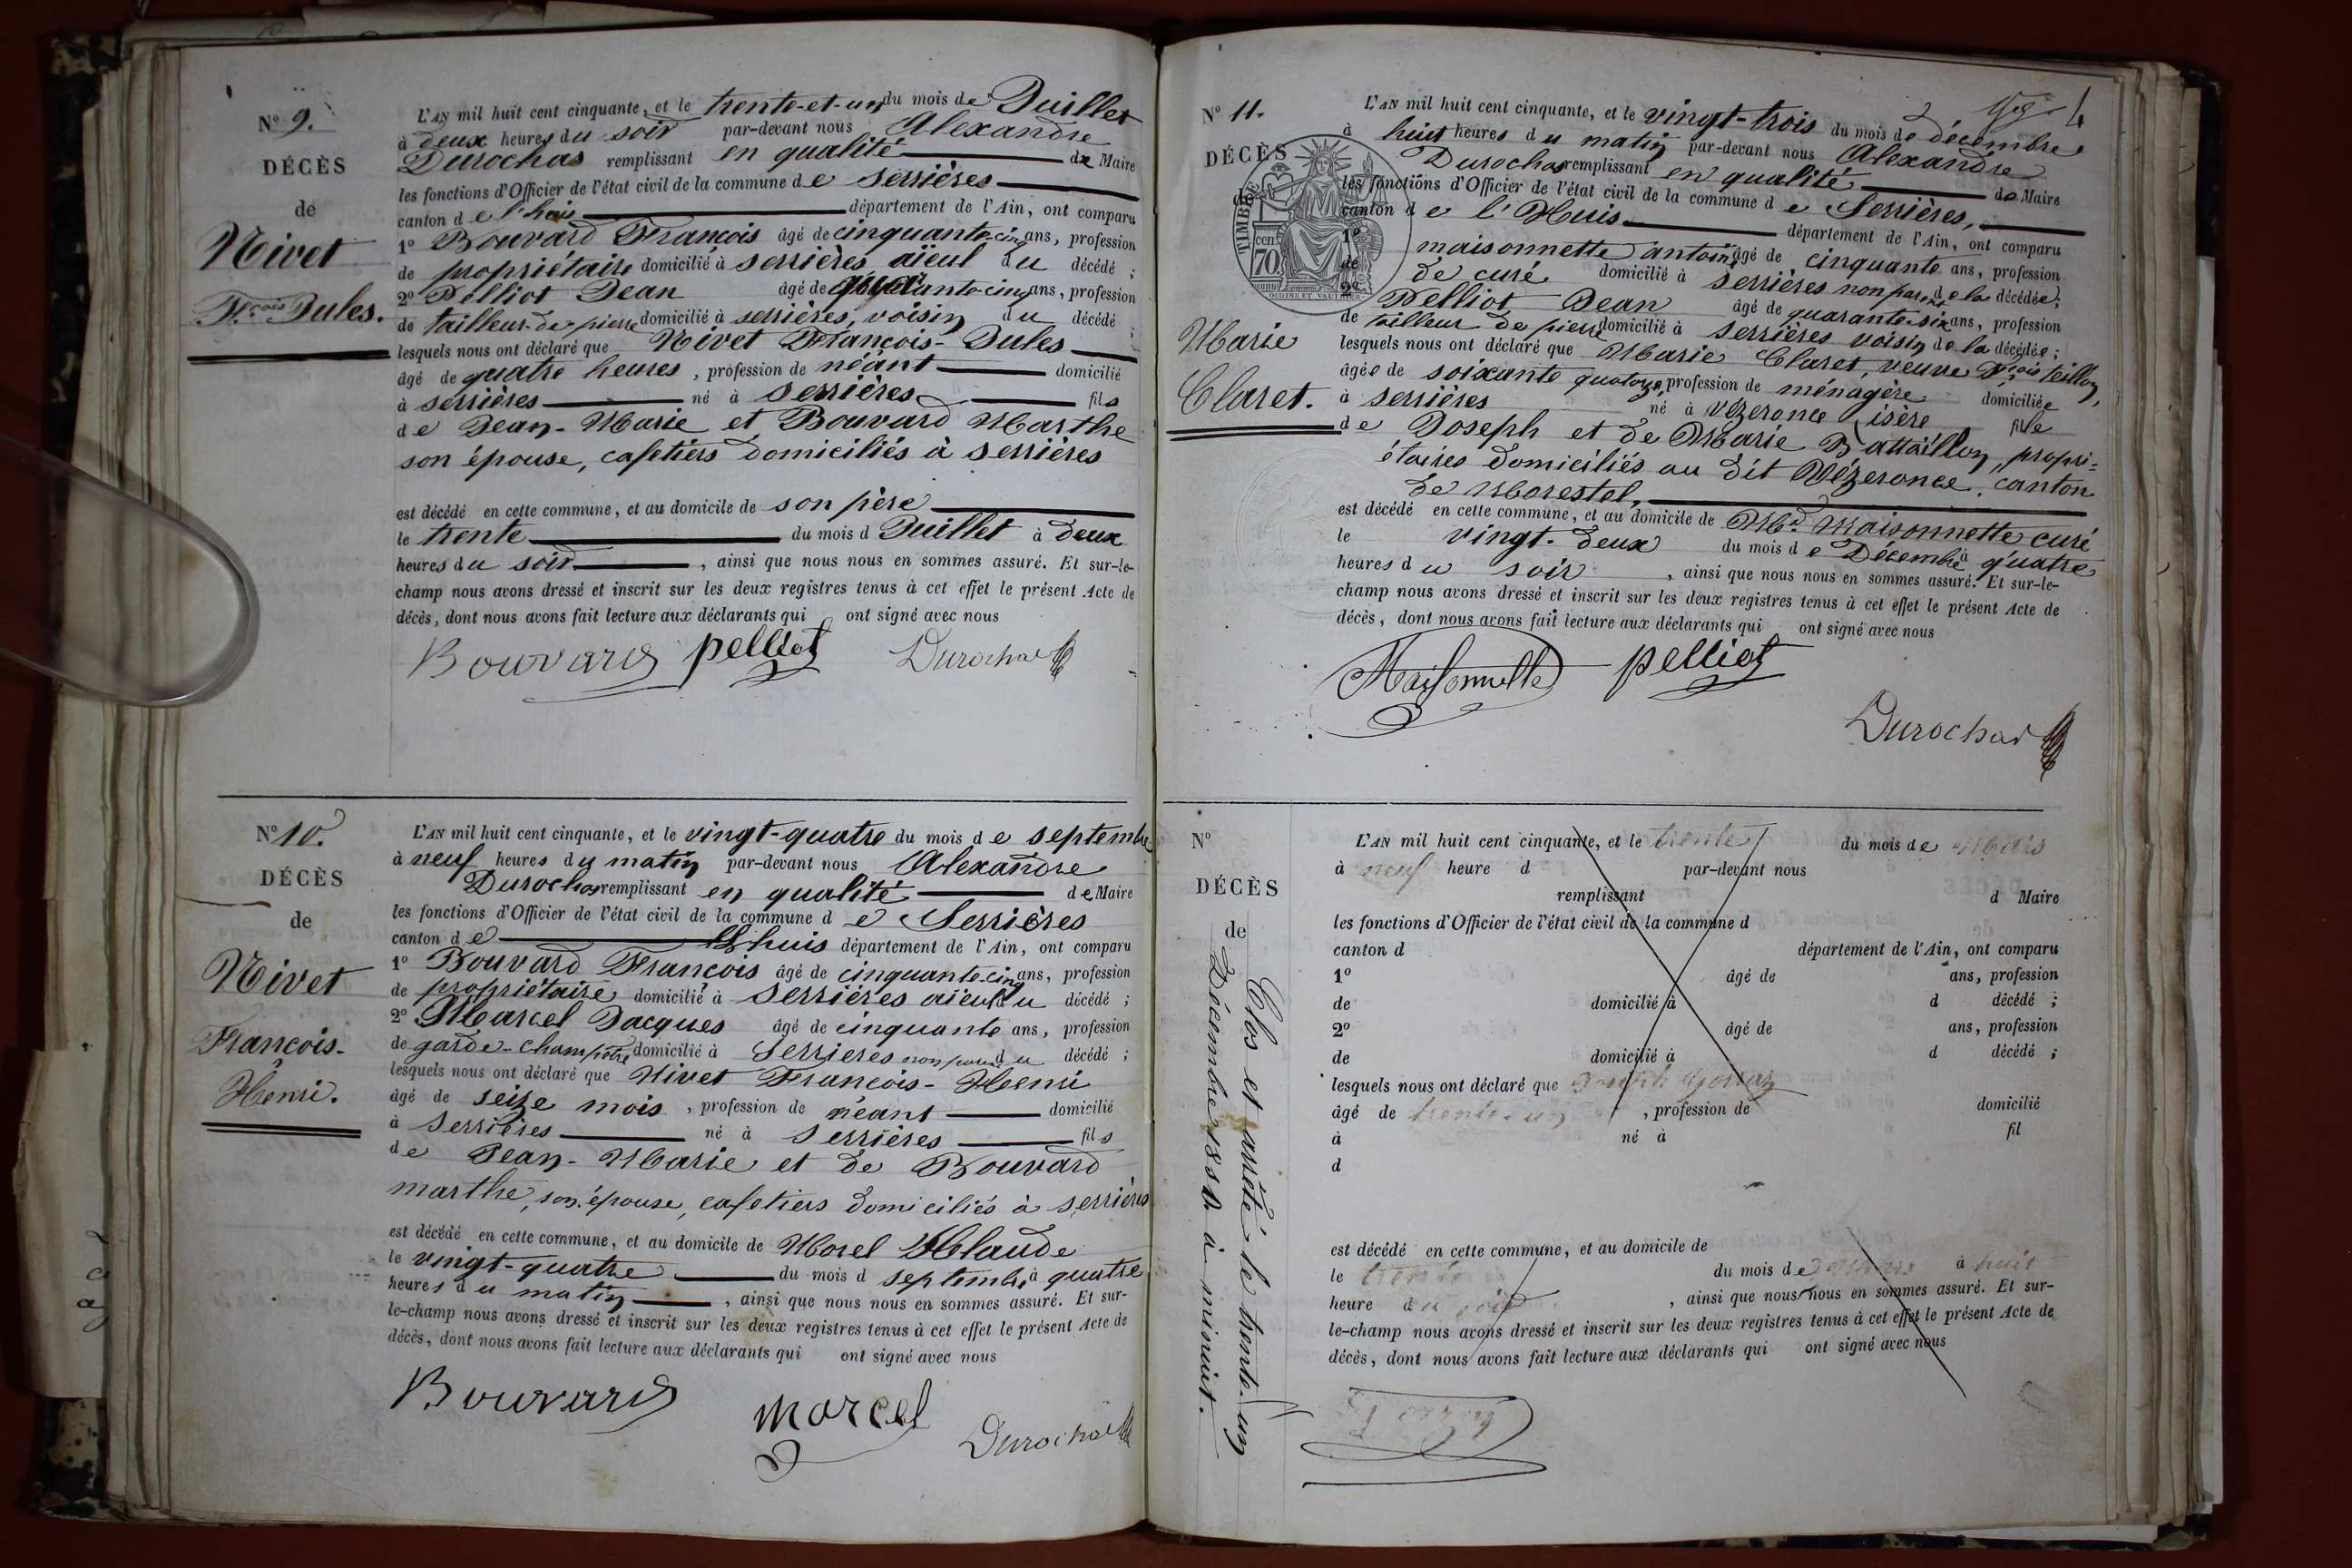 N° 9.
DÉCÈS
de
Nivet
F.çois Jules.
L'AN mil huit cent cinquante, et le trente-et-un du mois de Juillet
à deux heures du soir par-devant nous Alexandre
Durochas remplissant en qualité de Maire
les fonctions d'Officier de l'état civil de la commune de Serrières
canton de l'huis département de l'Ain, ont comparu
1° Bouvard François âgé de cinquante-cinq ans, profession
de propriétaire domicilié à serrières aïeul du décédé ;
2° Pelliot Jean âgé de quarante-cinq ans, profession
de tailleur de pierre domicilié à serrières, voisin du décédé ;
lesquels nous ont déclaré que Nivet François-Jules
âgé de quatre heures, profession de néant domicilié
à serrières né à serrières fils
de Jean-Marie et Bouvard Marthe
son épouse, cafetiers domiciliés à serrières
est décédé en cette commune, et au domicile de son père
le trente du mois d Juillet à deux
heures du soir, ainsi que nous nous en sommes assuré. Et sur-le-
champ nous avons dressé et inscrit sur les deux registres tenus à cet effet le présent Acte de
décès, dont nous avons fait lecture aux déclarants qui ont signé avec nous
Bouvard pelliot Durochat
N° 10.
DÉCÈS
de
Nivet
François-
Henri.
L'AN mil huit cent cinquante, et le vingt-quatre du mois de septembre
à neuf heures du matin par-devant nous Alexandre
Durochas remplissant en qualité de Maire
les fonctions d'Officier de l'état civil de la commune de Serrières
canton de Lhuis département de l'Ain, ont comparu
1° Bouvard François âgé de cinquante-cinq ans, profession
de propriétaire domicilié à serrières aïeul du décédé ;
2° Marcel Jacques âgé de cinquante ans, profession
de garde-champêtre domicilié à Serrieres non parent du décédé ;
lesquels nous ont déclaré que Nivet François-Henri
âgé de seize mois, profession de néant domicilié
à serrières né à serrières fils
de Jean-Marie et de Bouvard
marthe, son épouse, cafetiers domiciliés à serrières
est décédé en cette commune, et au domicile de Morel Claude
le vingt-quatre du mois d septembre à quatre
heures du matin, ainsi que nous nous en sommes assuré. Et sur-
le-champ nous avons dressé et inscrit sur les deux registres tenus à cet effet le présent Acte de
décès, dont nous avons fait lecture aux déclarants qui ont signé avec nous
Bouvard marcel Durochat
N° 11.
DÉCÈS
de
TIMBRE
cen. 70
OUDINÉ ET VAUTHIER
Marie
Claret.
L'AN mil huit cent cinquante, et le vingt-trois du mois de décembre
à huit heures du matin par-devant nous Alexandre
Durochas remplissant en qualité de Maire
les fonctions d'Officier de l'état civil de la commune de Serrières,
canton de l'Huis département de l'Ain, ont comparu
1° maisonnette antoine âgé de cinquante ans, profession
de curé domicilié à serrières non parent de la décédée ;
2° Pelliot Jean âgé de quarante-six ans, profession
de tailleur de pierre domicilié à serrières voisin de la décédée ;
lesquels nous ont déclaré que Marie Claret, veuve F.çois teillon,
âgée de soixante quatorze, profession de ménagère domiciliée
à serrières né à vézeronce isère fille
de Joseph et de Marie Battaillon, propri=
étaires domiciliés au dit Vézeronce, canton
de Morestel,
est décédé en cette commune, et au domicile de Mr. Maisonnette curé
le vingt-deux du mois de Décembre à quatre
heures du soir, ainsi que nous nous en sommes assuré. Et sur-le-
champ nous avons dressé et inscrit sur les deux registres tenus à cet effet le présent Acte de
décès, dont nous avons fait lecture aux déclarants qui ont signé avec nous
Maisonnette pelliot
Durochat
N°
DÉCÈS
de
Clos et arrêté le trente-un
Décembre 1850 à minuit.
L'AN mil huit cent cinquante, et le trente du mois de Mars
à neuf heure d par-devant nous
remplissant d Maire
les fonctions d'Officier de l'état civil de la commune d
canton d département de l'Ain, ont comparu
1° âgé de ans, profession
de domicilié à d décédé ;
2° âgé de ans, profession
de domicilié à d décédé ;
lesquels nous ont déclaré que
âgé de trente-un, profession de domicilié
à né à fil
d
est décédé en cette commune, et au domicile de
le trente du mois de mars à huit
heure du soir, ainsi que nous nous en sommes assuré. Et sur-
le-champ nous avons dressé et inscrit sur les deux registres tenus à cet effet le présent Acte de
décès, dont nous avons fait lecture aux déclarants qui ont signé avec nous